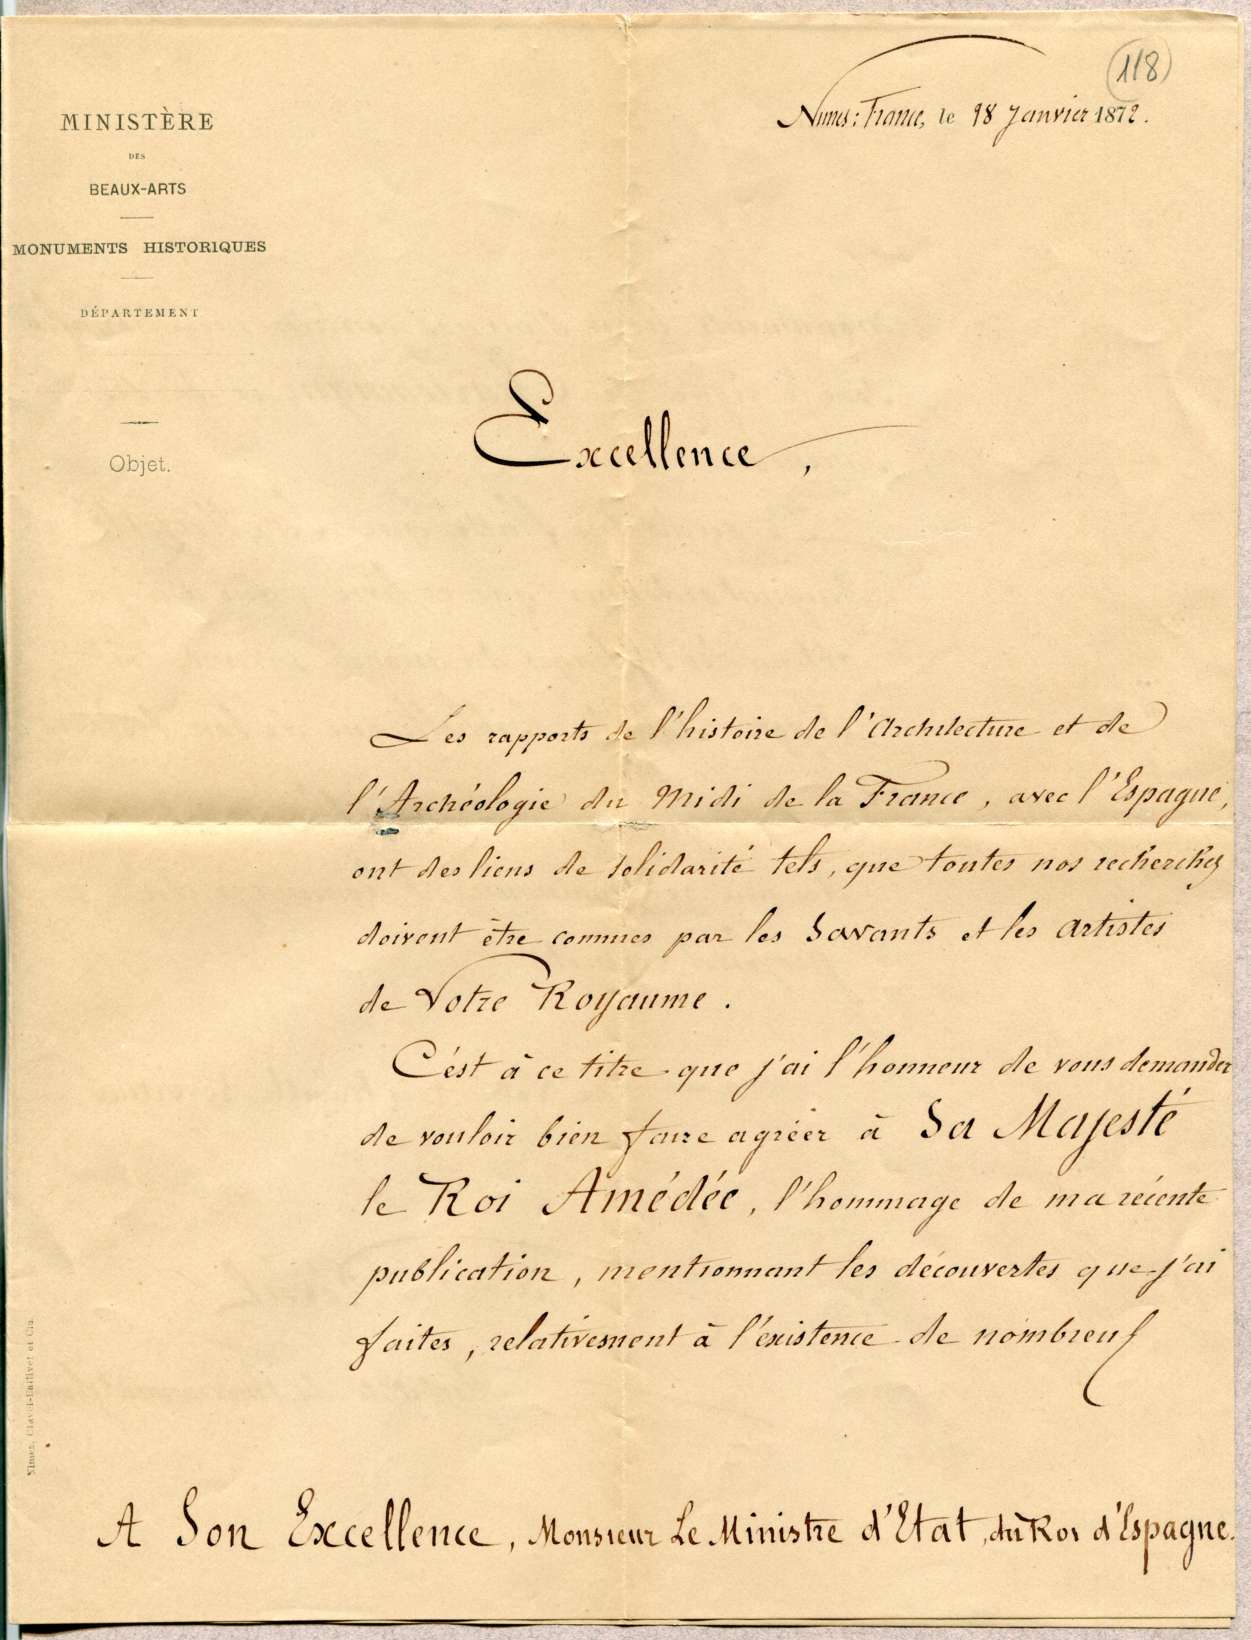 118
Nimes: France, le 28 Janvier 1872.
MINISTÈRE
DES
BEAUX-ARTS
MONUMENTS HISTORIQUES
DÉPARTEMENT
Objet.
Excellence,
Les rapports de l'histoire de l'Architecture et de
l'Archéologie du Midi de la France, avec l'Espagne,
ont des liens de solidarité tels, que toutes nos recherches
doivent être connues par les Savants et les artistes
de Votre Royaume.
C'ést à ce titre que j'ai l'honneur de vous demander
de vouloir bien faire agréer à Sa Majesté
le Roi Amédée, l'hommage de ma récente
publication, mentionnant les découvertes que j'ai
faites, relativement à l'éxistence de nombreux
A Son Excellence, Monsieur Le Ministre d'Etat, du Roi d'Espagne.
Nimes, Clavel-Ballivet et Cie.